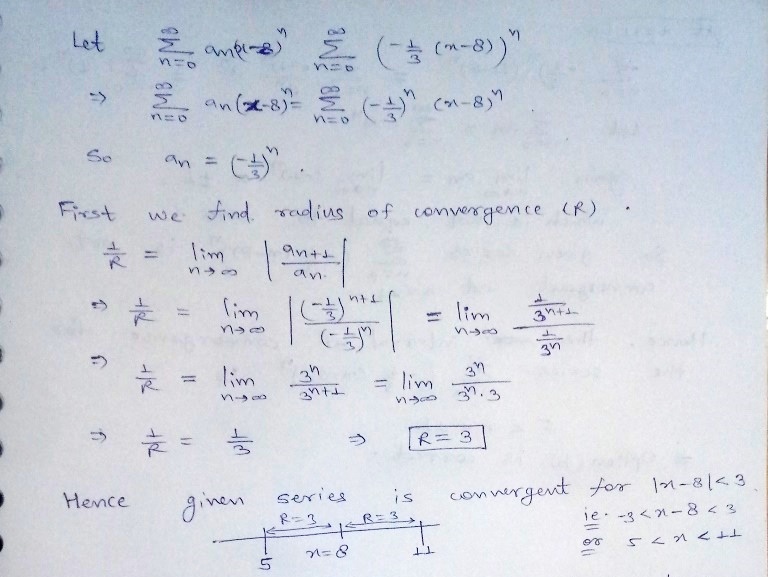 Let ∑_{n=0}^{∞} an(x-8)^n ∑_{n=0}^{∞} (-1/3 (x-8))^n
⇒ ∑_{n=0}^{∞} an(x-8)^n = ∑_{n=0}^{∞} (-1/3)^n (x-8)^n
So an = (-1/3)^n .
First we find radius of convergence (R) .
1/R = lim_{n→∞} |an+1/an|
⇒ 1/R = lim_{n→∞} |(-1/3)^{n+1}/(-1/3)^n| = lim_{n→∞} (1/3^{n+1})/(1/3^n)
⇒ 1/R = lim_{n→∞} 3^n/3^{n+1} = lim_{n→∞} 3^n/3^n.3
⇒ 1/R = 1/3 ⇒ R = 3
Hence given series is convergent for |x-8|<3
ie. -3<x-8<3
or 5<x<11
R=3 R=3
5 x=8 11